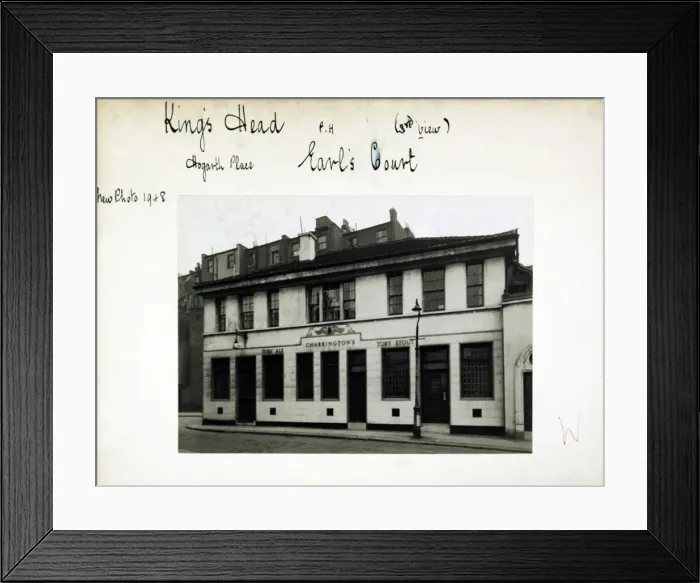 King's Head P.H (3rd view)
Hogarth Place Earl's Court
New Photo 1948
CHARRINGTON'S
TOBY ALE TOBY STOUT
W